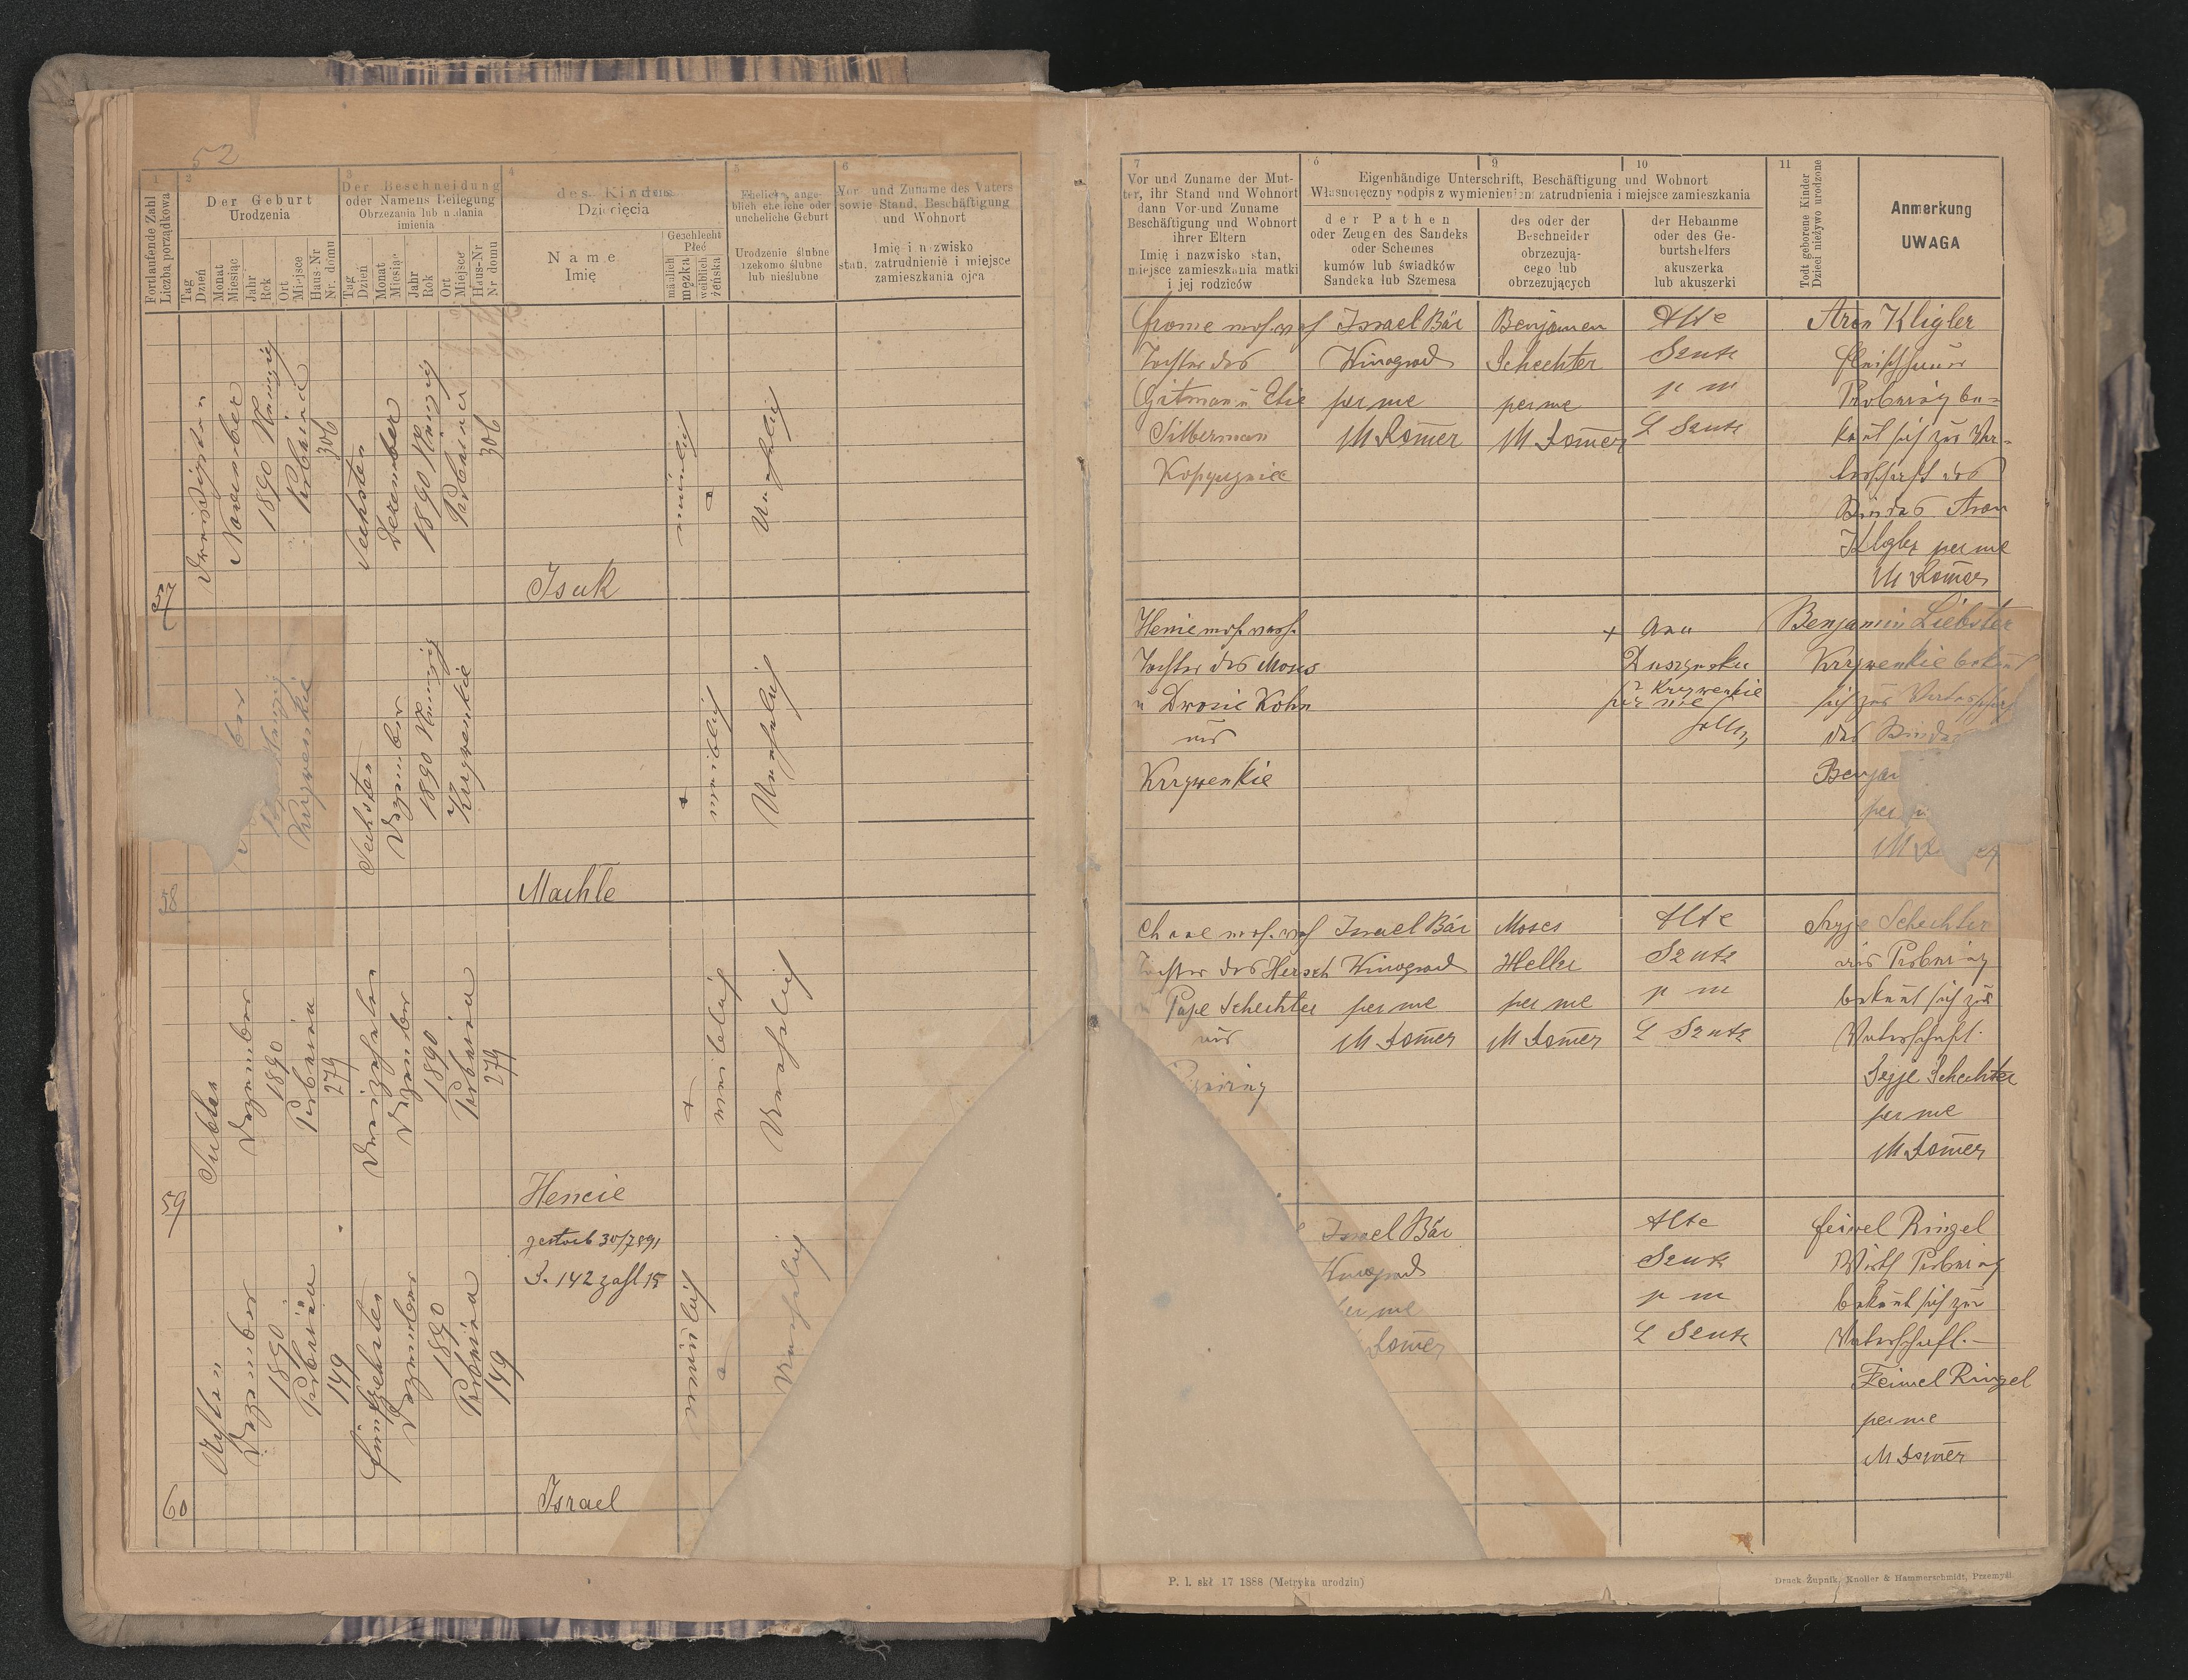 52
1
2
3
4
5
6
Fortlaufende Zahl
Liczba porządkowa
Der Geburt
Urodzenia
Tag
Dzień
Monat
Miesiąc
Jahr
Rok
Ort
Miejsce
Haus-Nr
Nr. domu
Der Beschneidung
oder Namens Beilegung
Obrzezania lub nadania
imienia
Tag
Dzień
Monat
Miesiąc
Jahr
Rok
Ort
Miejsce
Haus-Nr
Nr domu
des Kindes
Dziecięcia
Name
Imię
Geschlecht
Płeć
mänlich
męzka
weiblich
żeńska
Eheliche, ange-
blich eheliche oder
uneheliche Geburt
Urodzenie ślubne
rzekomo ślubne
lub nieślubne
Vor- und Zuname des Vaters
sowie Stand, Beschäftigung
und Wohnort
Imię i nazwisko
stan, zatrudnienie i miejsce
zamieszkania ojca
57
Dreissigsten
November
1890
306
Sechsten
Dezember
1890
306
Isak
männlich
Unehelich
58
Krzywenkie
Sechsten
Dezember
1890
Krzywenkie
Machle
weiblich
Unehelich
59
Siebten
Dezember
1890
Probużna
279
Dreizehnten
Dezember
1890
Probużna
279
Hencie
weiblich
Unehelich
60
Achten
Dezember
1890
Probużna
149
Fünfzehnten
Dezember
1890
Probużna
149
gestorb 30/7 891
S. 142 zahl 15
Israel
männlich
Unehelich
7
8
9
10
11
Vor und Zuname der Mut-
ter, ihr Stand und Wohnort
dann Vor-und Zuname
Beschäftigung und Wohnort
ihrer Eltern
Imię i nazwisko stan,
miejsce zamieszkania matki
i jej rodziców
Eigenhändige Unterschrift, Beschäftigung und Wohnort
Własnoręczny podpis z wymienieniem zatrudnienia i miejsce zamieszkania
der Pathen
oder Zeugen des Sandeks
oder Schemes
kumów lub świadków
Sandeka lub Szemesa
des oder der
Beschneider
obrzezują-
cego lub
obrzezujących
der Hebamme
oder des Ge-
burtshelfers
akuszerka
lub akuszerki
Todt geborene Kinder
Dzieci nieżywo urodzone
Anmerkung
UWAGA
Tochter des
Gitman u Etie
Silberman
Israel Bär
Winograd
per me
M Somer
Benjamen
Schechter
per me
M Somer
Alte
Szutz
p m
L Szutz
Aron Kligler
Fleischhauer
bekannt sich zur Va-
terschaft des
Kindes Aron
Kligler per me
M Somer
Henie
Tochter des Moses
u Dwosie Kohn
aus
Krzywenkie
+ Anna
Krzywenkie
per me
Benjamin Liebster
Krzywenkie bekannt
sich zur Vaterschaft
des Kindes
Benja
per
M
Chane
Tochter des Hersch
Schechter
aus
Israel Bär
Winograd
per me
M Somer
Moses
Heller
per me
M Somer
Alte
Szutz
p m
L Szutz
Schechter
aus
bekannt sich zur
Vaterschaft.
Schechter
per me
M Somer
Israel Bär
Winograd
per me
Somer
Alte
Szutz
p m
L Szutz
Feiwel Ringel
bekannt sich zur
Vaterschaft.-
Feiwel Ringel
per me
M Somer
P. l. skł 17 1888 (Metryka urodzin)
Druck Żupnik, Knoller & Hammerschmidt, Przemyśl.